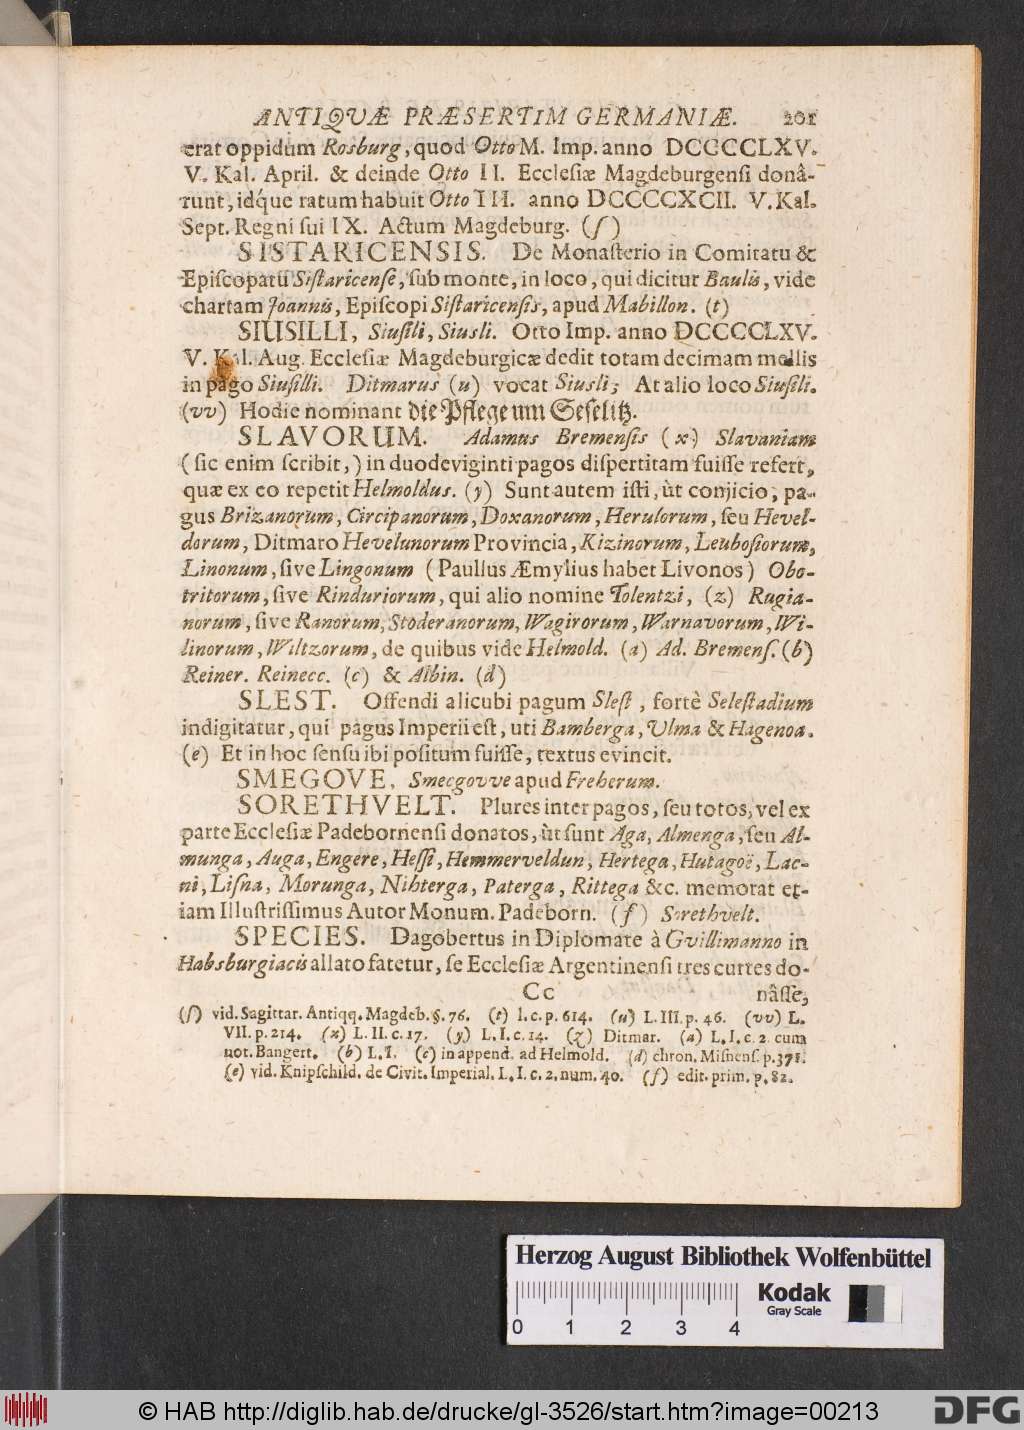 ANTIQVÆ PRÆSERTIM GERMANIÆ. 201
erat oppidum Rosburg, quod Otto M. Imp. anno DCCCCLXV.
V. Kal. April. & deinde Otto II. Ecclesiæ Magdeburgensi donâ-
runt, idq́ue ratum habuit Otto III. anno DCCCCXCII. V. Kal.
Sept. Regni sui IX. Actum Magdeburg. (ſ)
SISTARICENSIS. De Monaſterio in Comitatu &
Epiſcopatu Siſtaricenſe, ſub monte, in loco, qui dicitur Baulis, vide
chartam Joannis, Epiſcopi Siſtaricenſis, apud Mabillon. (t)
SIUSILLI, Siuſili, Siusli. Otto Imp. anno DCCCCLXV.
V. Kal. Aug. Eccleſiæ Magdeburgicæ dedit totam decimam mellis
in pago Siuſilli. Ditmarus (u) vocat Siusli; At alio loco Siuſili.
(vv) Hodie nominant die Pflege um Geſelitz.
SLAVORUM. Adamus Bremenſis (x) Slavaniam
(ſic enim ſcribit,) in duodeviginti pagos diſpertitam fuiſſe refert,
quæ ex eo repetit Helmoldus. (y) Sunt autem iſti, ùt conjicio, pa-
gus Brizanorum, Circipanorum, Doxanorum, Herulorum, ſeu Hevel-
dorum, Ditmaro Hevelunorum Provincia, Kizinorum, Leuboſiorum,
Linonum, ſive Lingonum (Paullus Æmylius habet Livonos) Obo-
tritorum, ſive Rinduriorum, qui alio nomine Tolentzi, (z) Rugia-
norum, ſive Ranorum, Stoderanorum, Wagirorum, Warnavorum, Wi-
linorum, Wiltzorum, de quibus vide Helmold. (a) Ad. Bremenſ. (b)
Reiner. Reinecc. (c) & Albin. (d)
SLEST. Offendi alicubi pagum Sleſt, fortè Seleſtadium
indigitatur, qui pagus Imperii eſt, uti Bamberga, Ulma & Hagenoa.
(e) Et in hoc ſenſu ibi poſitum fuiſſe, textus evincit.
SMEGOVE, Smecgovve apud Freherum.
SORETHVELT. Plures inter pagos, ſeu totos, vel ex
parte Eccleſiæ Padebornenſi donatos, ùt ſunt Aga, Almenga, ſeu Al-
munga, Auga, Engere, Heſſi, Hemmerveldun, Hertega, Hutagoë, Lac-
ni, Liſna, Morunga, Nihterga, Paterga, Rittega &c. memorat et-
iam Illuſtriſſimus Autor Monum. Padeborn. (f) Sorethvelt.
SPECIES. Dagobertus in Diplomate à Gvillimanno in
Habsburgiacis allato fatetur, ſe Eccleſiæ Argentinenſi tres curtes do-
Cc nâſſe,
(ſ) vid. Sagittar. Antiqq. Magdeb. §. 76. (t) l. c. p. 614. (u) L. III. p. 46. (vv) L.
VII. p. 214. (x) L. II. c. 17. (y) L. I. c. 14. (z) Ditmar. (a) L. I. c. 2. cum
not. Bangert. (b) L. I. (c) in append. ad Helmold. (d) chron. Miſnenſ. p. 371.
(e) vid. Knipſchild. de Civit. Imperial. L. I. c. 2. num. 40. (f) edit. prim. p. 82.
Herzog August Bibliothek Wolfenbüttel
Kodak
Gray Scale
0 1 2 3 4
© HAB http://diglib.hab.de/drucke/gl-3526/start.htm?image=00213
DFG